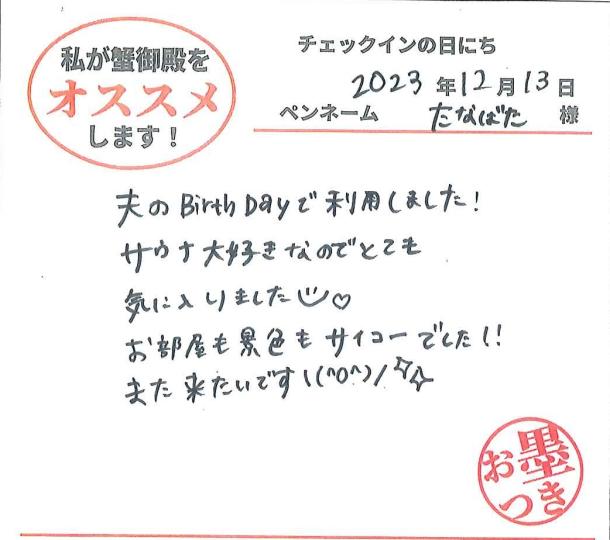 私が蟹御殿を
オススメ
します！
チェックインの日にち
2023 年 12 月 13 日
ペンネーム たなばた 様
夫の Birth Day で 利用しました！
サウナ大好きなのでとても
気に入りました
お部屋も景色もサイコーでした！！
また来たいです\(^o^)/
お墨
つき